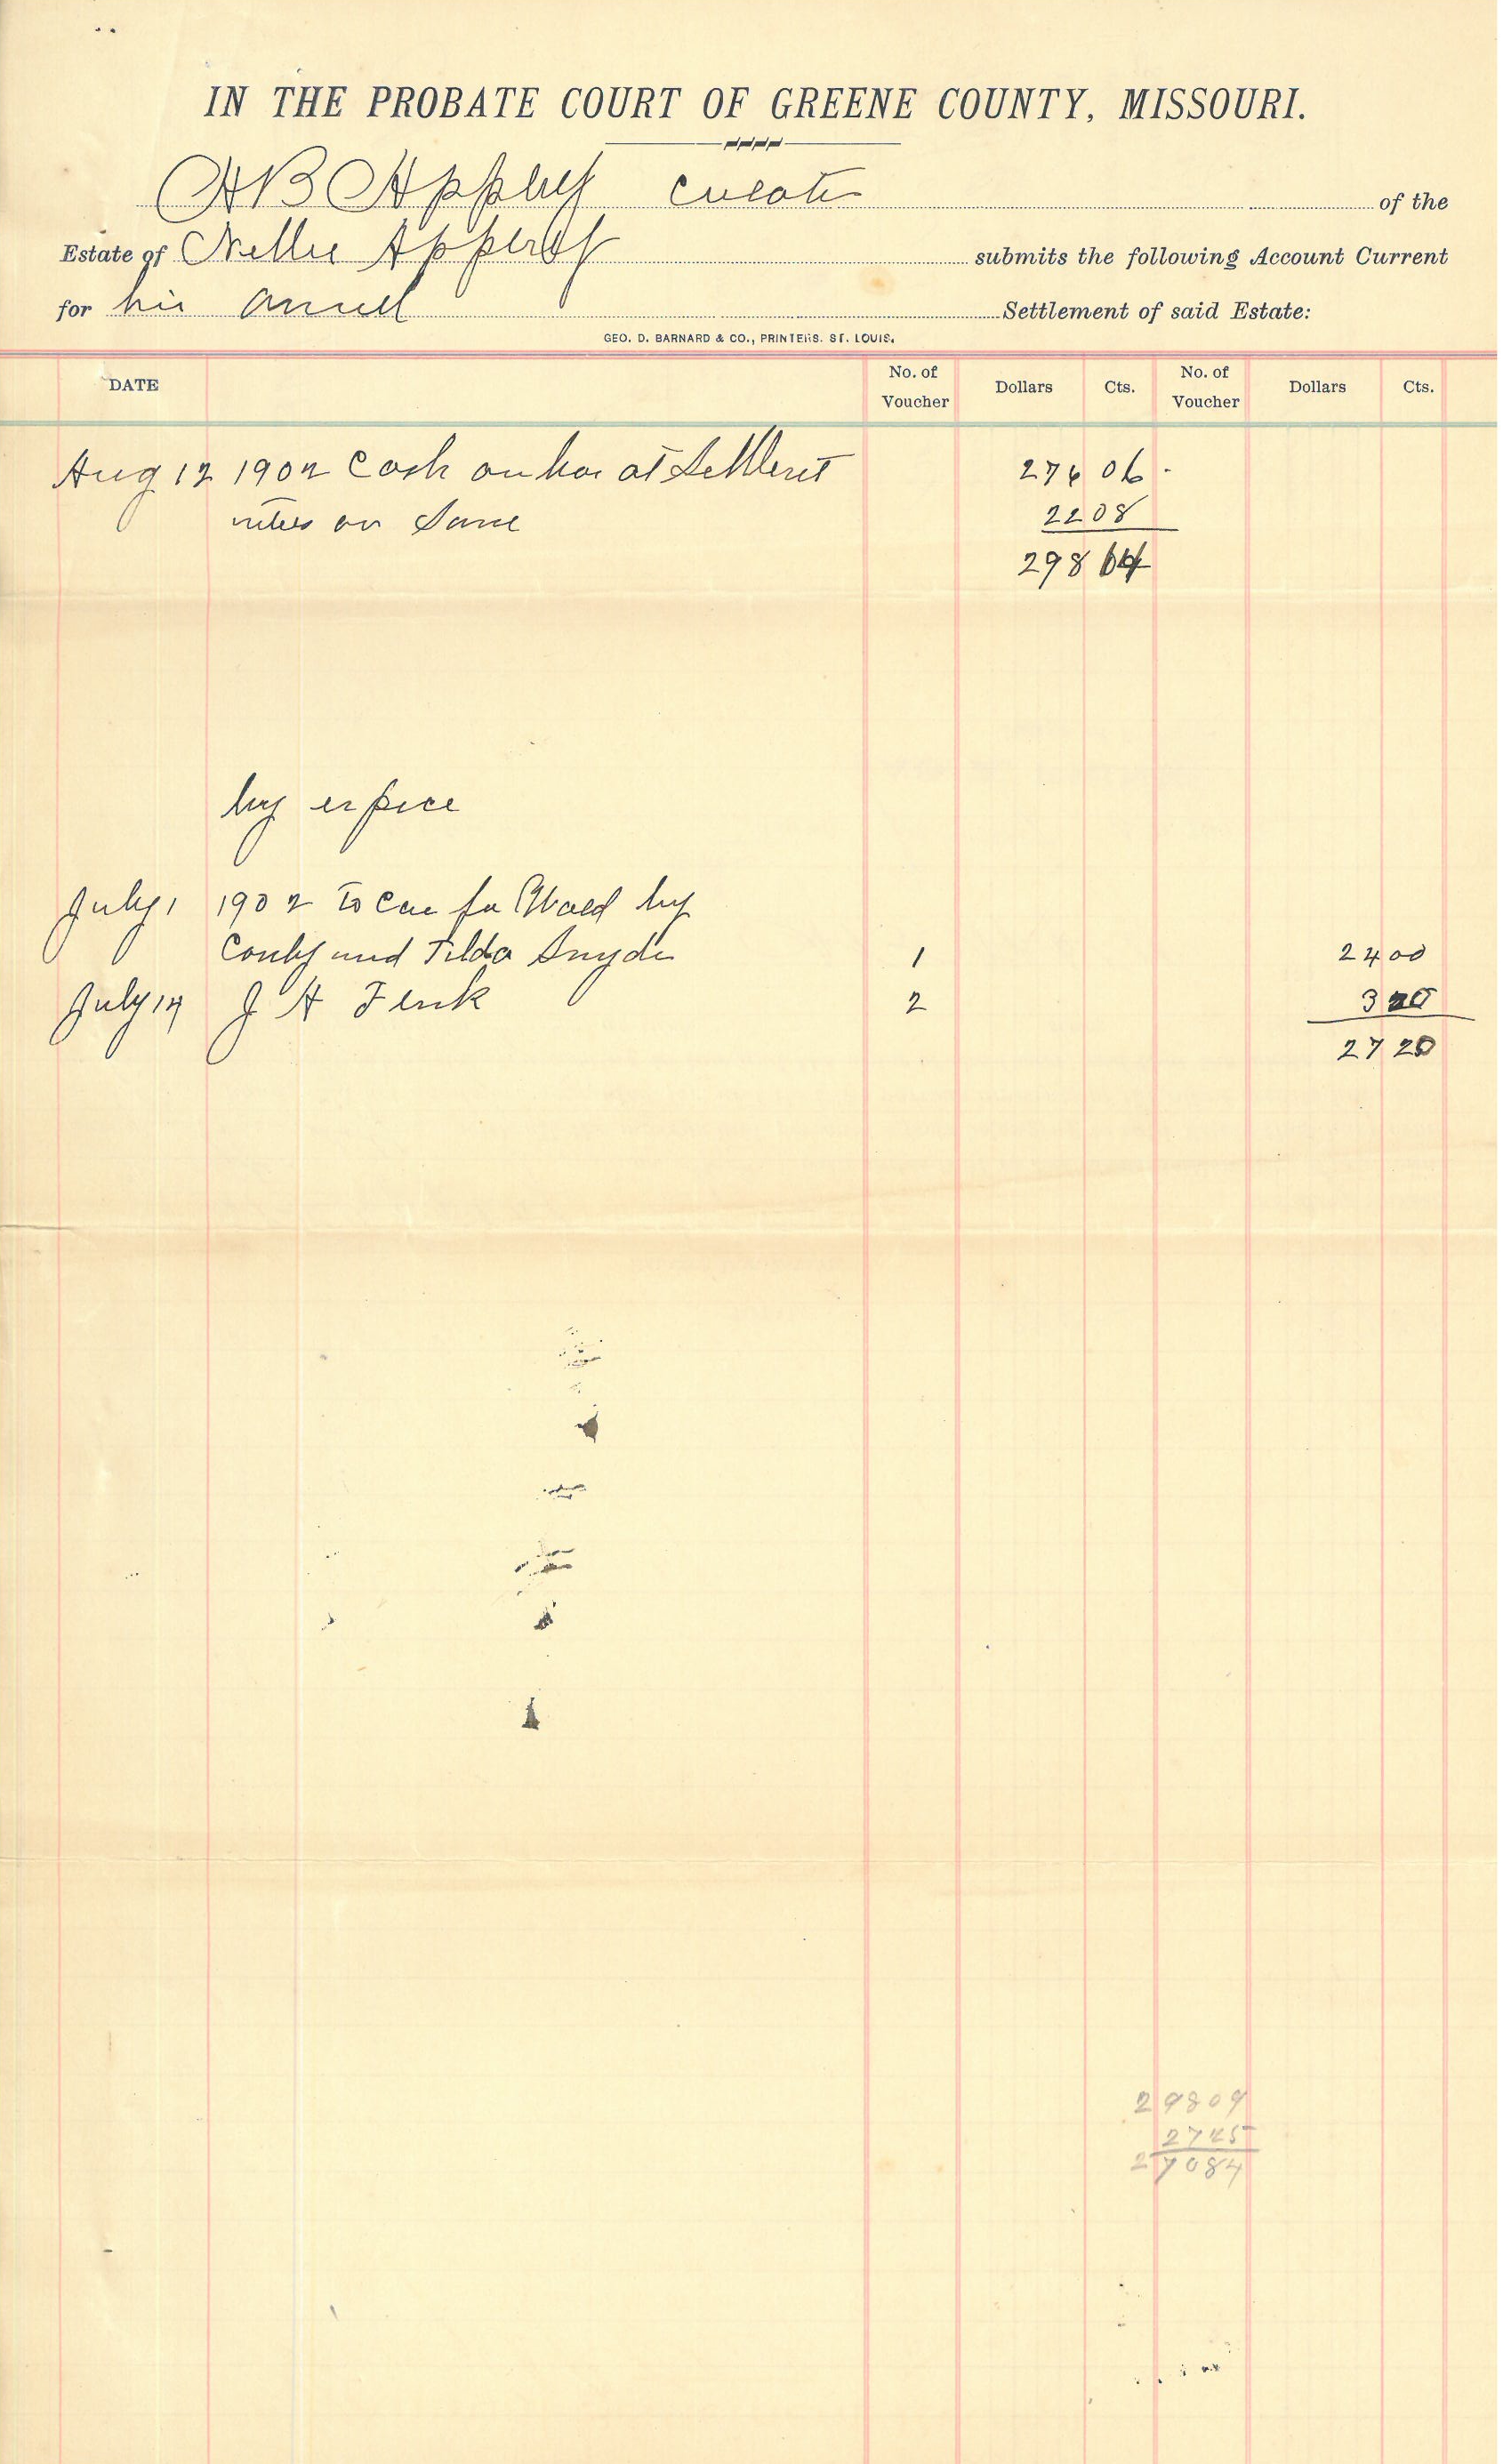 IN THE PROBATE COURT OF GREENE COUNTY, MISSOURI.
A B Appleby Curator of the
Estate of Nellie Appleby submits the following Account Current
for his Settlement of said Estate:
GEO. D. BARNARD & CO., PRINTERS. ST. LOUIS.
DATE No. of Voucher Dollars Cts. No. of Voucher Dollars Cts.
Aug 12 1902 Cash on at Settlement 276 06
on Same 22 08
298
by
July 1 1902 To Care for Ward by
and Tilda Snyder 1 24 00
July 14 J H 2 3 20
27 20
29809
2725
27084